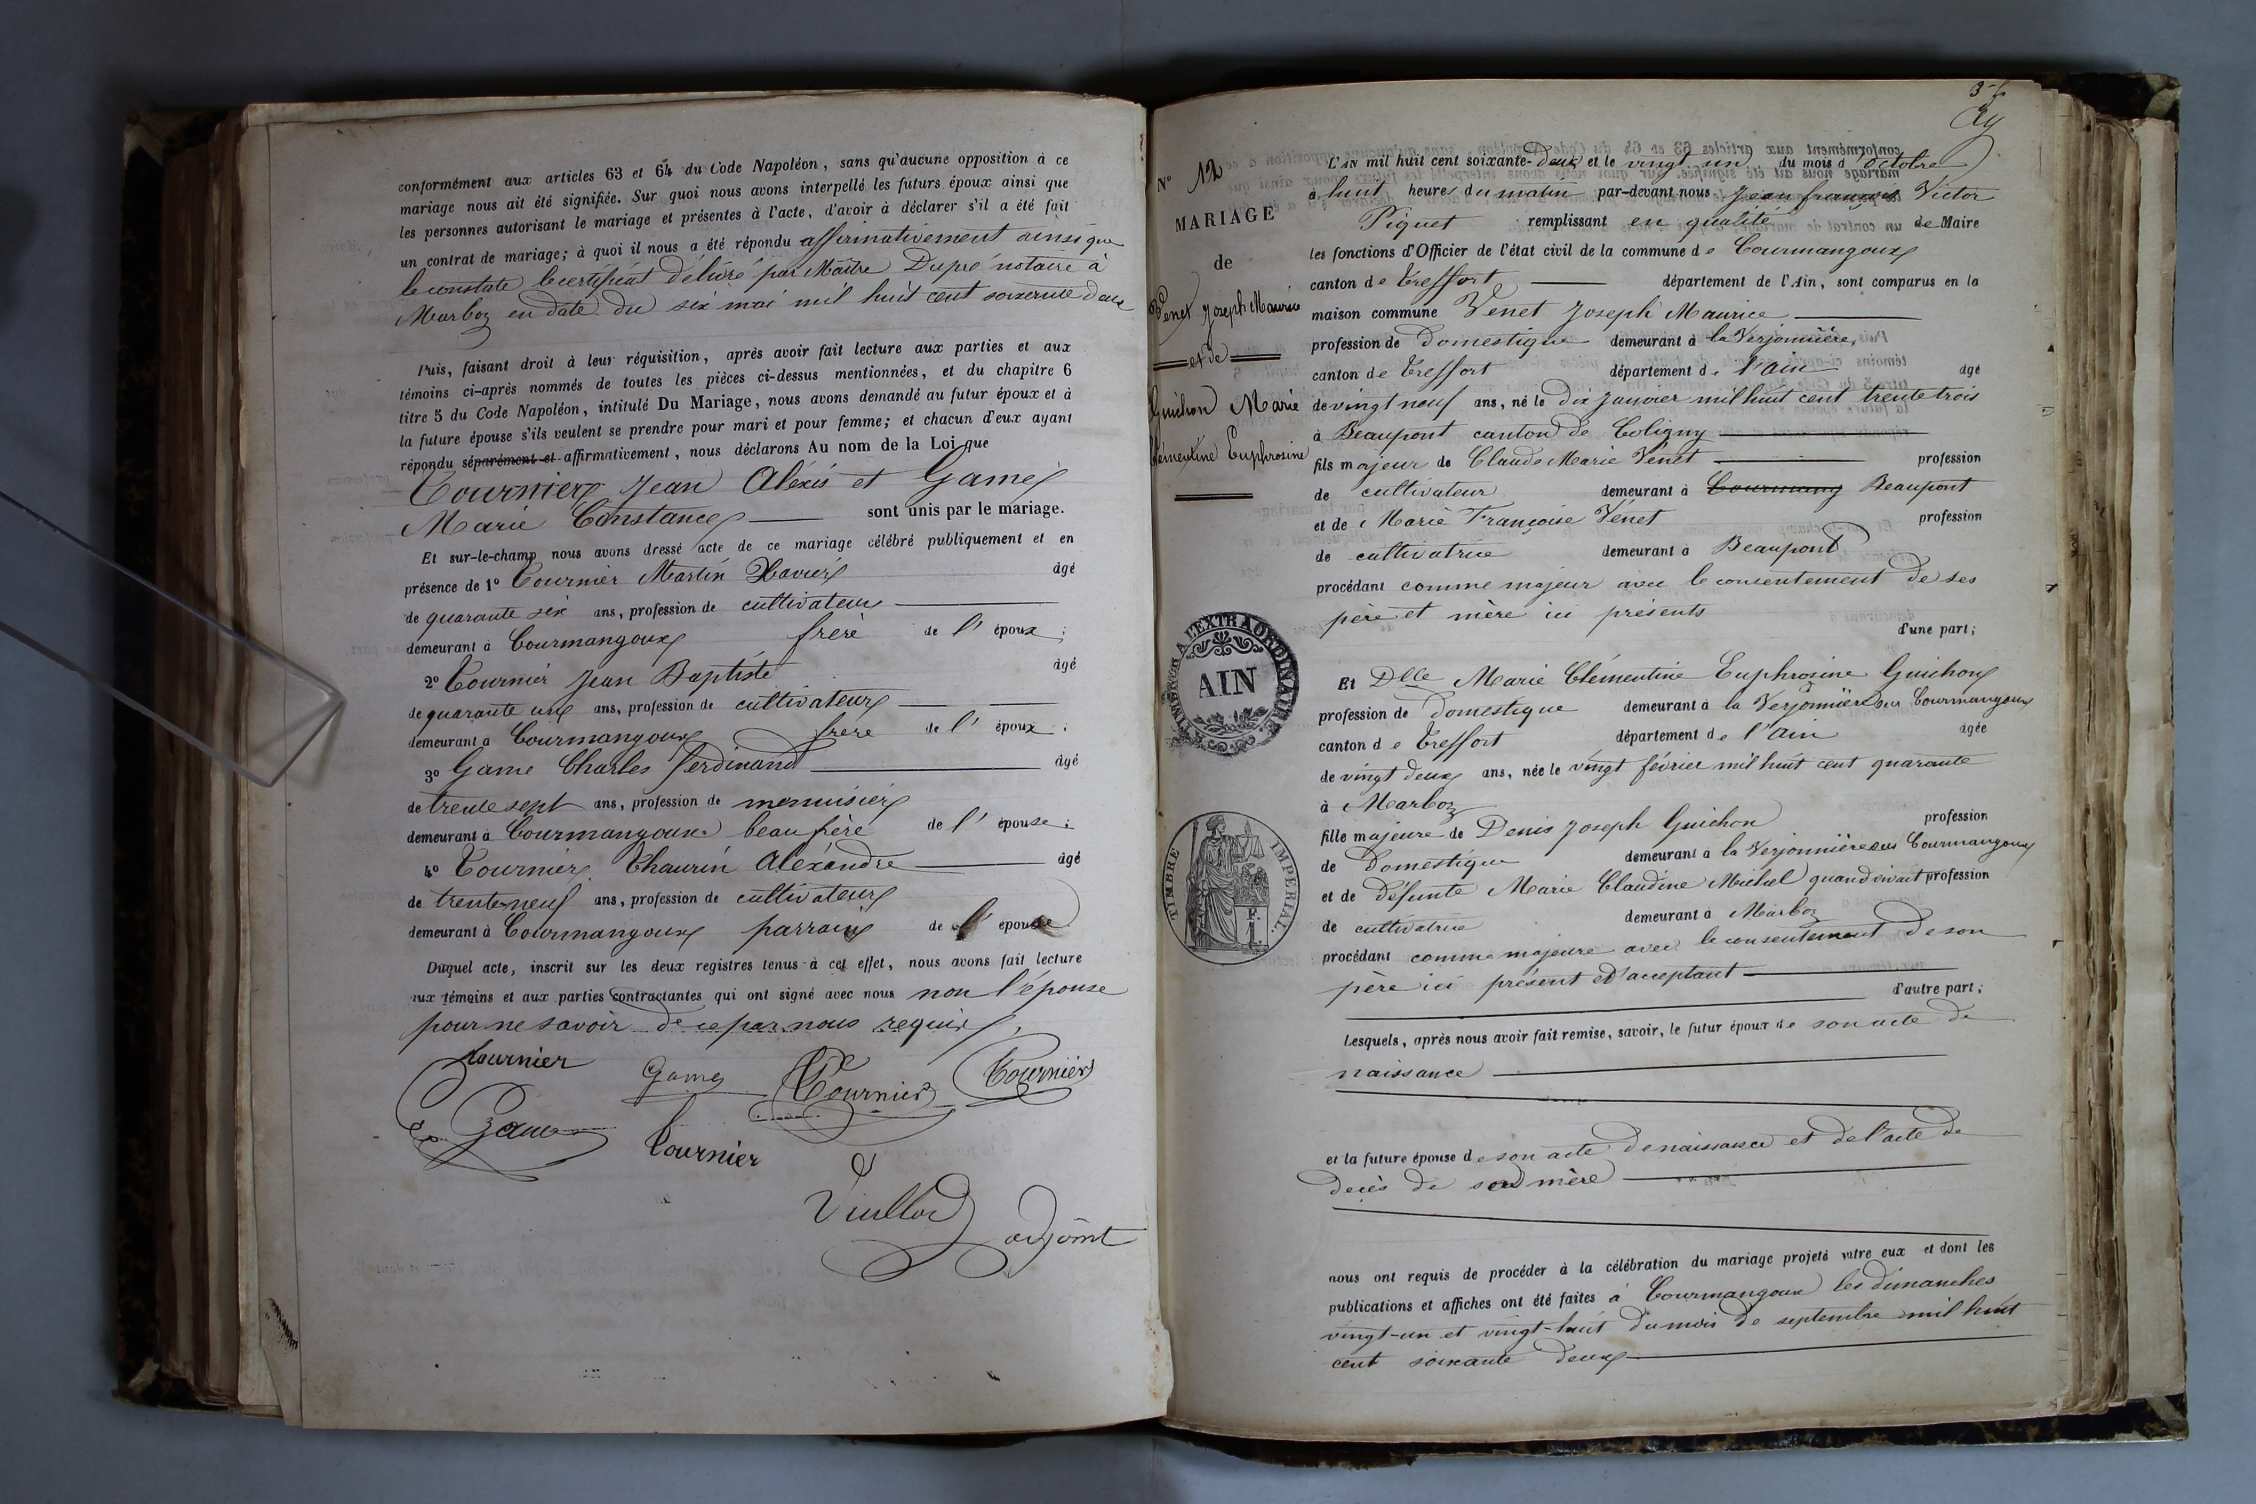 conformément aux articles 63 et 64 du Code Napoléon, sans qu'aucune opposition à ce
mariage nous ait été signifiée. Sur quoi nous avons interpellé les futurs époux ainsi que
les personnes autorisant le mariage et présentes à l'acte, d'avoir à déclarer s'il a été fait
un contrat de mariage; à quoi il nous a été répondu affirmativement ainsi que
le constate le certificat délivré par Maître Dupré notaire à
Marboz en date du six mai mil huit cent soixante deux
Puis, faisant droit à leur réquisition, après avoir fait lecture aux parties et aux
témoins ci-après nommés de toutes les pièces ci-dessus mentionnées, et du chapitre 6
titre 5 du Code Napoléon, intitulé Du Mariage, nous avons demandé au futur époux et à
la future épouse s'ils veulent se prendre pour mari et pour femme; et chacun d'eux ayant
répondu séparément et affirmativement, nous déclarons Au nom de la Loi que
Tournier Jean Aléxis et Game
Marie Constance sont unis par le mariage.
Et sur-le-champ nous avons dressé acte de ce mariage célébré publiquement et en
présence de 1º Tournier Martin Xavier âgé
de quarante six ans, profession de cultivateur
demeurant à Courmangoux frère de l'époux;
2º Tournier Jean Baptiste âgé
de quarante un ans, profession de cultivateur
demeurant à Courmangoux frère de l'époux;
3º Game Charles Ferdinand âgé
de trente sept ans, profession de menuisier
demeurant à Courmangoux beau frère de l'épouse;
4º Tournier Thaurin Aléxandre âgé
de trente neuf ans, profession de cultivateur
demeurant à Courmangoux parrain de l'épouse
Duquel acte, inscrit sur les deux registres tenus à cet effet, nous avons fait lecture
aux témoins et aux parties contractantes qui ont signé avec nous non l'épouse
pour ne savoir de ce par nous requis
Tournier Game Tournier Tournier
Game Tournier
adjoint
Nº 12
MARIAGE
de
Venet Joseph Maurice
et de
Guichon Marie
Clémentine Euphrosine
TIMBRE A L'EXTRAORDINAIRE
AIN
TIMBRE IMPERIAL.
L'AN mil huit cent soixante-deux et le vingt un du mois d'octobre
à huit heures du matin par-devant nous Jean françois Victor
Piquet remplissant en qualité de Maire
les fonctions d'Officier de l'état civil de la commune de Courmangoux
canton de Treffort département de l'Ain, sont comparus en la
maison commune Venet Joseph Maurice
profession de Domestique demeurant à la Verjonnière,
canton de Treffort département de l'ain âgé
de vingt neuf ans, né le dix Janvier mil huit cent trente trois
à Beaupont canton de Coligny
fils majeur de Claude Marie Venet profession
de cultivateur demeurant à Courmang Beaupont
et de Marie Françoise Venet profession
de cultivatrice demeurant à Beaupont
procédant comme majeur avec le consentement de ses
père et mère ici présents
d'une part;
Et Dlle Marie Clémentine Euphrosine Guichon
profession de Domestique demeurant à la Verjonnière sur Courmangoux
canton de Treffort département de l'ain âgée
de vingt deux ans, née le vingt février mil huit cent quarante
à Marboz
fille majeure de Denis Joseph Guichon profession
de Domestique demeurant à la Verjonnière sur Courmangoux
et de défunte Marie Claudine Michel quand vivait profession
de cultivatrice demeurant à Marboz
procédant comme majeure avec le consentement de son
père ici présent et acceptant
d'autre part;
Lesquels, après nous avoir fait remise, savoir, le futur époux de son acte de
naissance
et la future épouse de son acte de naissance et de l'acte de
decès de sa mère
nous ont requis de procéder à la célébration du mariage projeté entre eux et dont les
publications et affiches ont été faites à Courmangoux les dimanches
vingt-un et vingt-huit du mois de septembre mil huit
cent soixante deux